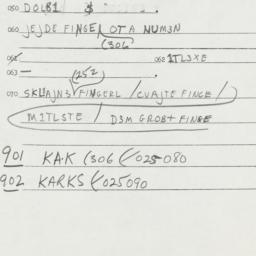 050 DOL81 $ .
060 JEJDE FINGE OTA NUM3N
(306
062 1TL3XE
063 — .
(252)
070 SKUAJN3 / FINGERL / CVAJTE FINGE /
M1TLSTE / D3M GROBT FINGE
901 KAK (306 (025 080
902 KARKS (025 090